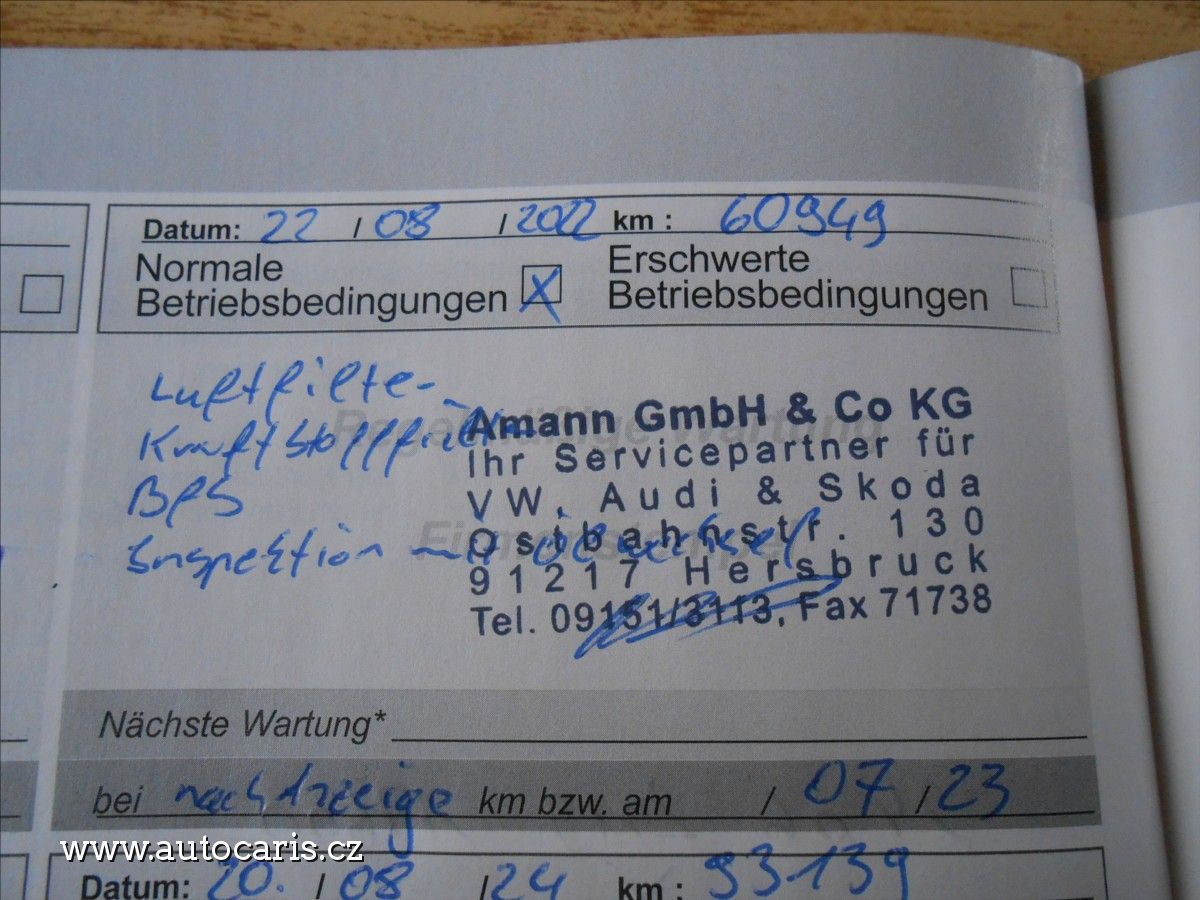 Datum: 22 / 08 / 2022 km : 60949
Normale Betriebsbedingungen X Erschwerte Betriebsbedingungen
Luftfilter
Kraftstofffilter
BFS
Inspektion mit Ölwechsel
Regelmäßige Wartung
Firmenstempel
Amann GmbH & Co KG
Ihr Servicepartner für
VW, Audi & Skoda
Ostbahnstr. 130
91217 Hersbruck
Tel. 09151/3113, Fax 71738
Nächste Wartung*
bei nach Anzeige km bzw. am / 07 / 23
www.autocaris.cz
Datum: 20. / 08 / 24 km : 93139